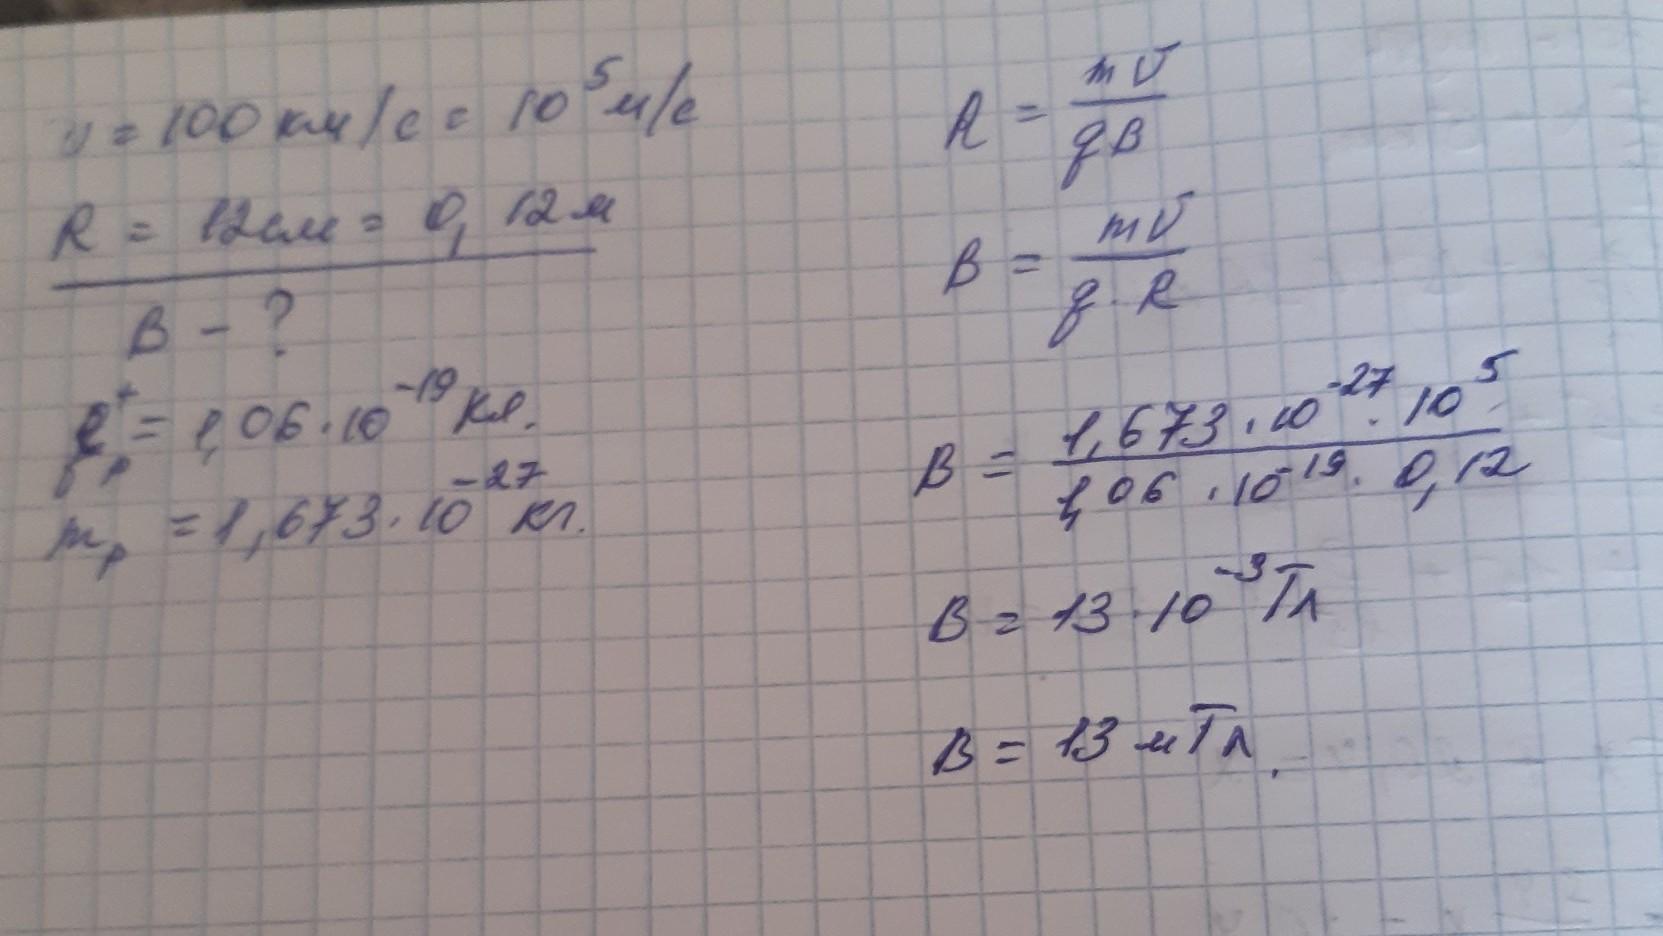 υ = 100 км/с = 10⁵ м/с
R = 12см = 0,12м
B - ?
qₚ⁺ = 1,06·10⁻¹⁹ Кл.
mₚ = 1,673·10⁻²⁷ кг.
R = mυ / qB
B = mυ / q·R
B = 1,673·10⁻²⁷·10⁵ / 1,06·10⁻¹⁹·0,12
B = 13·10⁻³ Тл
B = 13 мТл.